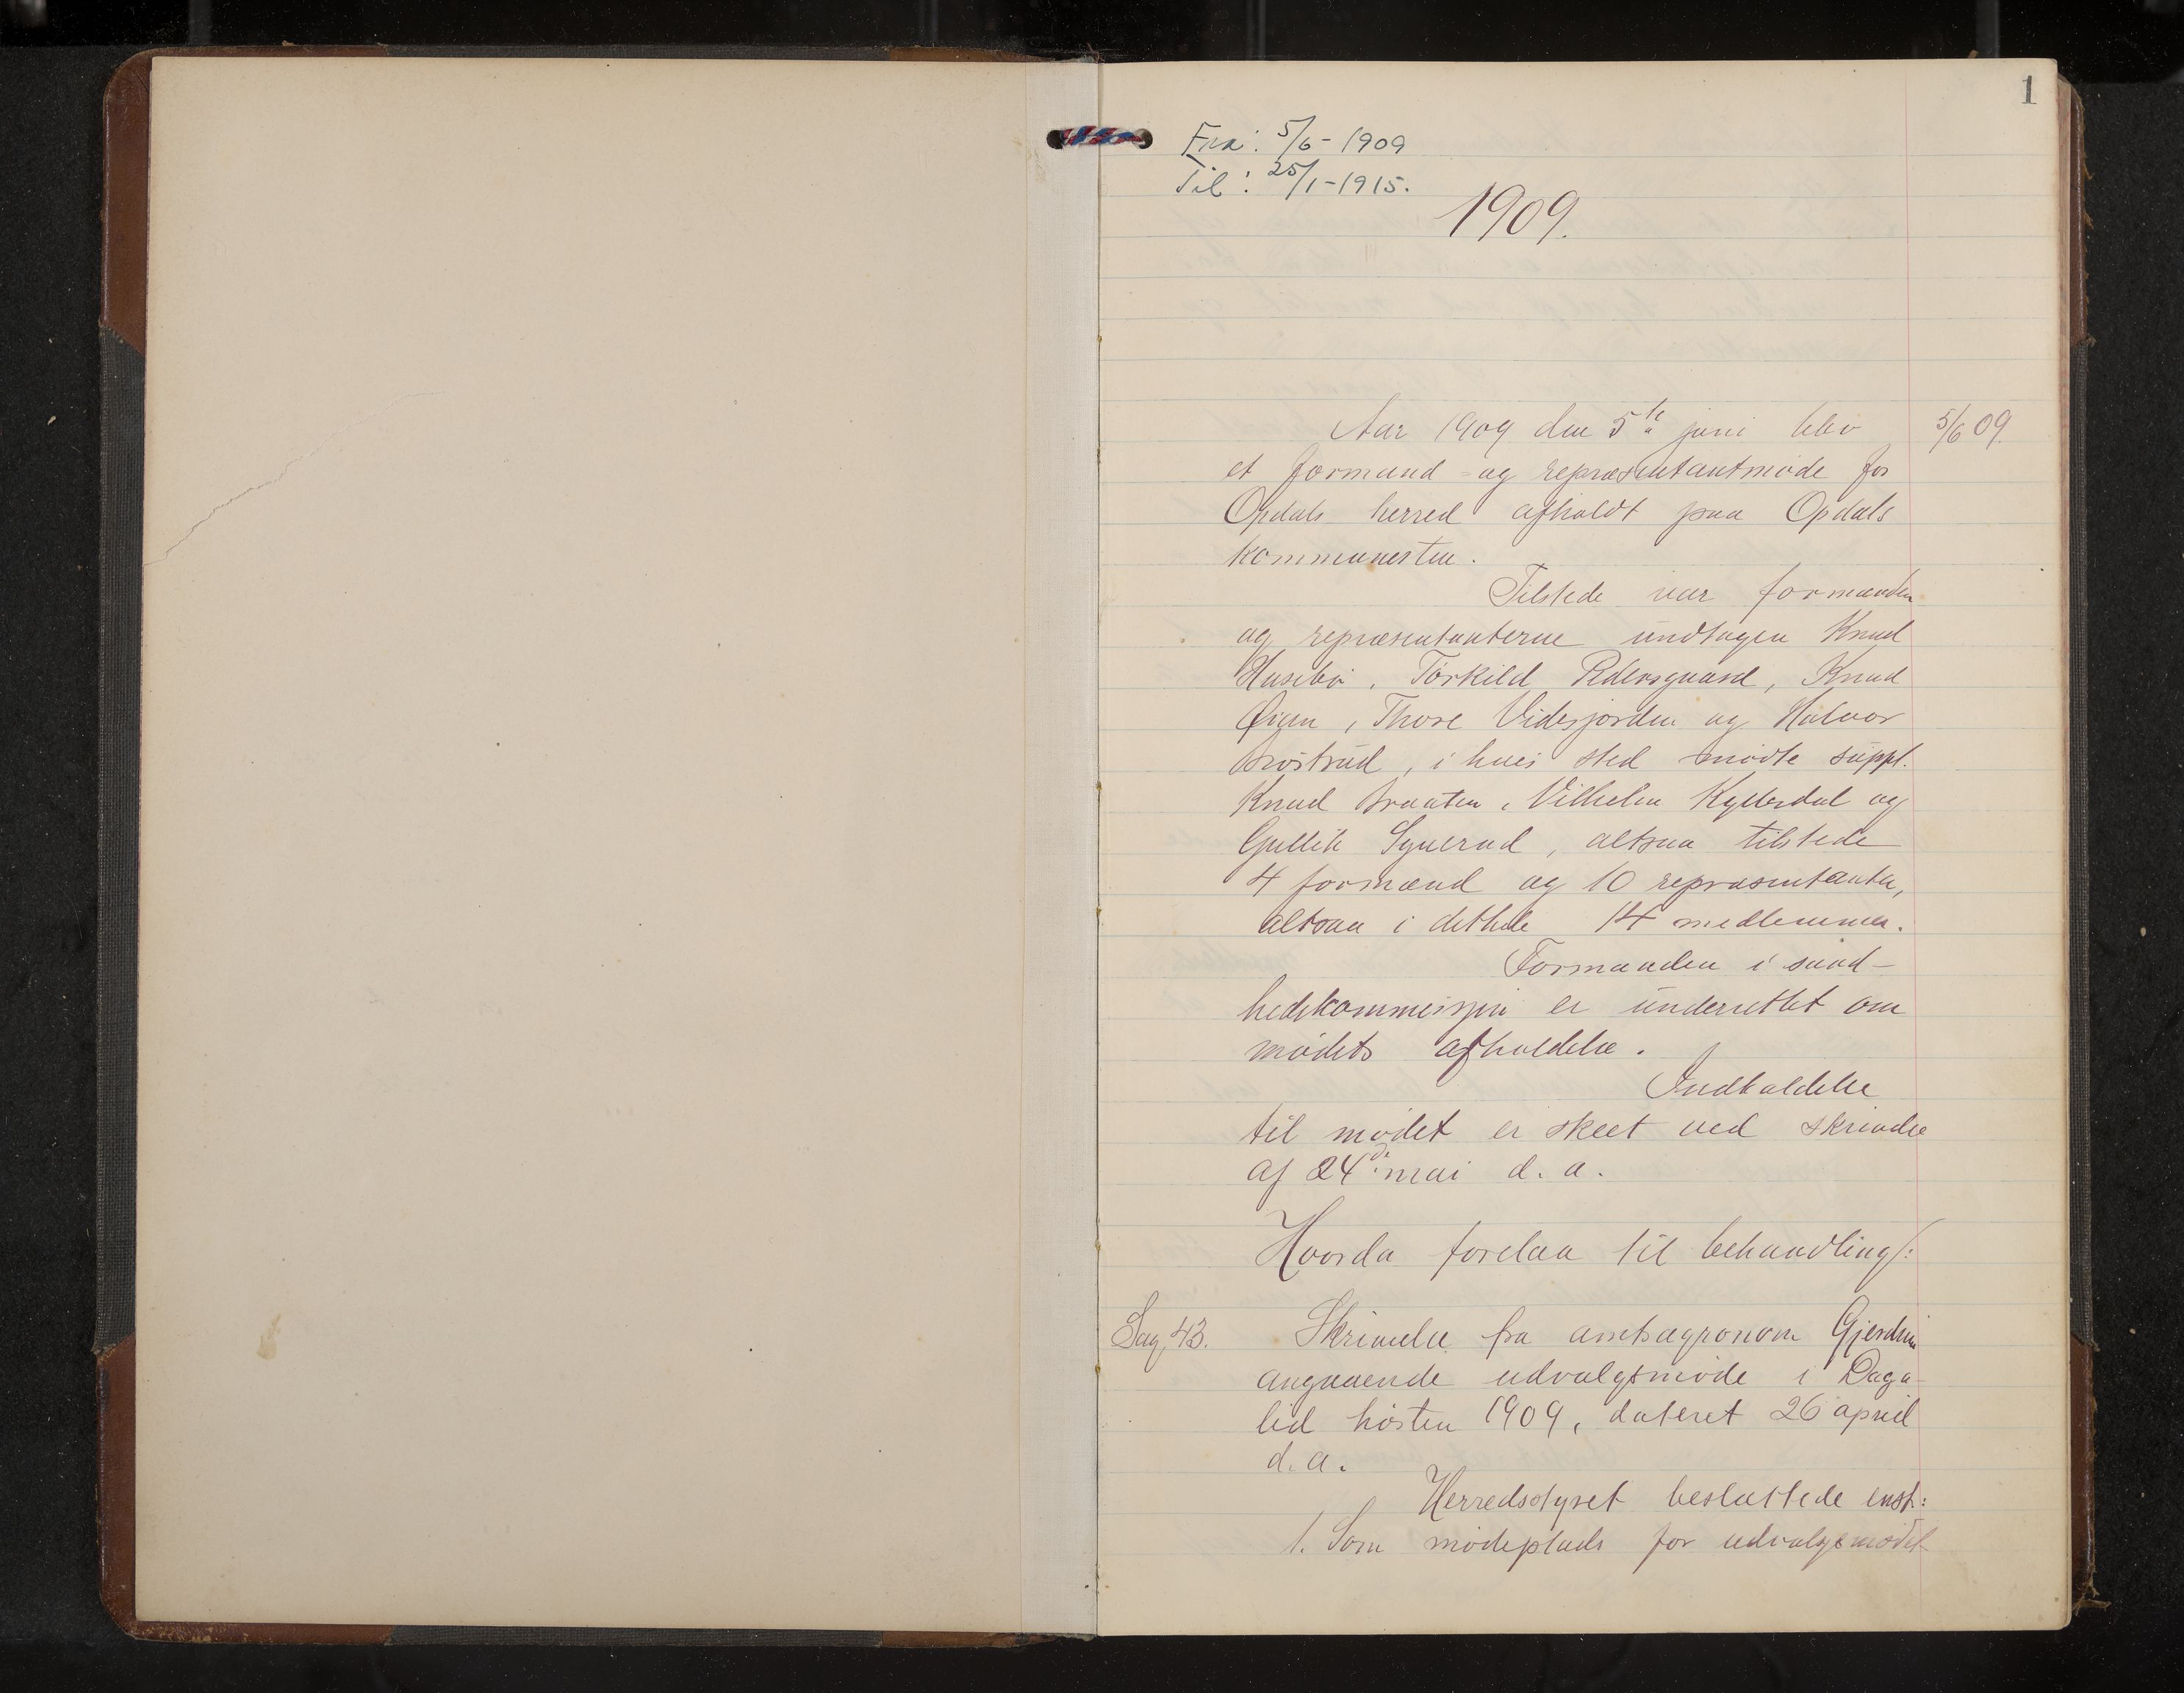 1
Fra: 5/6-1909
Til: 25/1-1915.
1909.
Aar 1909 den 5te juni blev 5/6 09
et formand- og repræsentantmøde for
Opdals herred afholdt paa Opdals
kommunesten.
Tilstede var formanden
og repræsentanterne undtagen Knud
Husebø, Torkild Pedersgaard, Knud
Øian, Thore Videsjorden og Halvor
i hvis sted mødte suppl.
Knud Braaten, Vilhelm og
Gullik altsaa tilstede
4 formænd og 10 repræsentanter,
altsaa i dethele 14 medlemmer.
Formanden i sund-
hedskommissjon er underrettet om
mødets afholdelse.
Indkaldelse
til mødet er skeet ved skrivelse
af 24de mai d. a.
Hvorda forelaa til behandling:
Sag 43. Skrivelse fra amtsagronom Gjerdrum
angaaende udvalgsmøde i Daga-
lid høsten 1909, dateret 26 april
d. a.
Herredsstyret besluttede enst:
1. Som mødeplads for udvalgsmødet